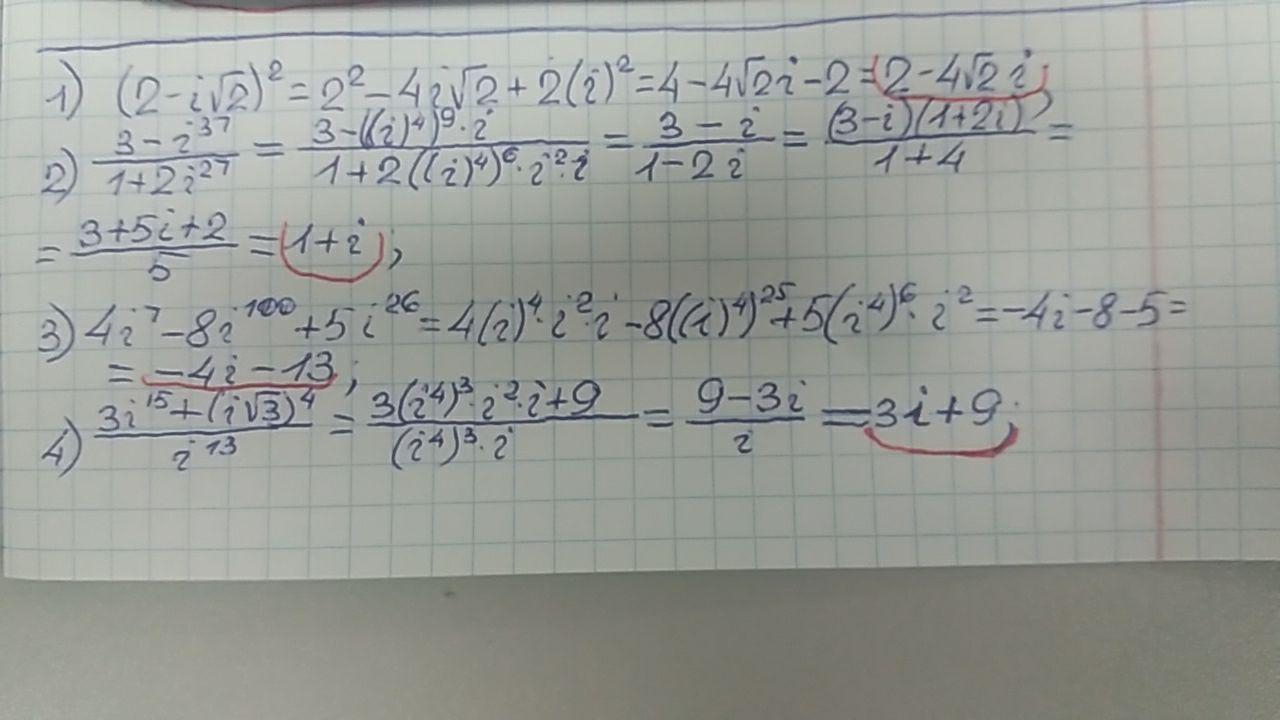 1) (2-i√2)² = 2² - 4i√2 + 2(i)² = 4 - 4√2i - 2 = 2 - 4√2 i;
2) (3 - i³⁷)/(1 + 2i²⁷) = (3 - ((i)⁴)⁹·i)/(1 + 2((i)⁴)⁶·i²·i) = (3 - i)/(1 - 2i) = ((3-i)(1+2i))/(1+4) =
= (3+5i+2)/5 = 1+i;
3) 4i⁷ - 8i¹⁰⁰ + 5i²⁶ = 4(i)⁴·i²·i - 8((i)⁴)²⁵ + 5(i⁴)⁶·i² = -4i - 8 - 5 =
= -4i - 13;
4) (3i¹⁵ + (i√3)⁴)/i¹³ = (3(i⁴)³·i²·i + 9)/((i⁴)³·i) = (9 - 3i)/i = 3i + 9;